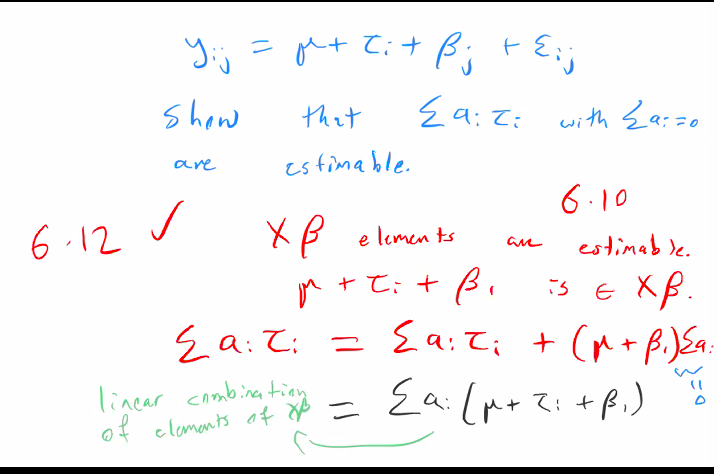 y_ij = μ + τ_i + β_j + ε_ij
Show that Σ a_i τ_i with Σ a_i = 0
are estimable.
6.10
6.12 ✓ Xβ elements are estimable.
μ + τ_i + β_1 is ∈ Xβ.
Σ a_i τ_i = Σ a_i τ_i + (μ + β_1) Σ a_i
0
linear combination
of elements of Xβ = Σ a_i (μ + τ_i + β_1)